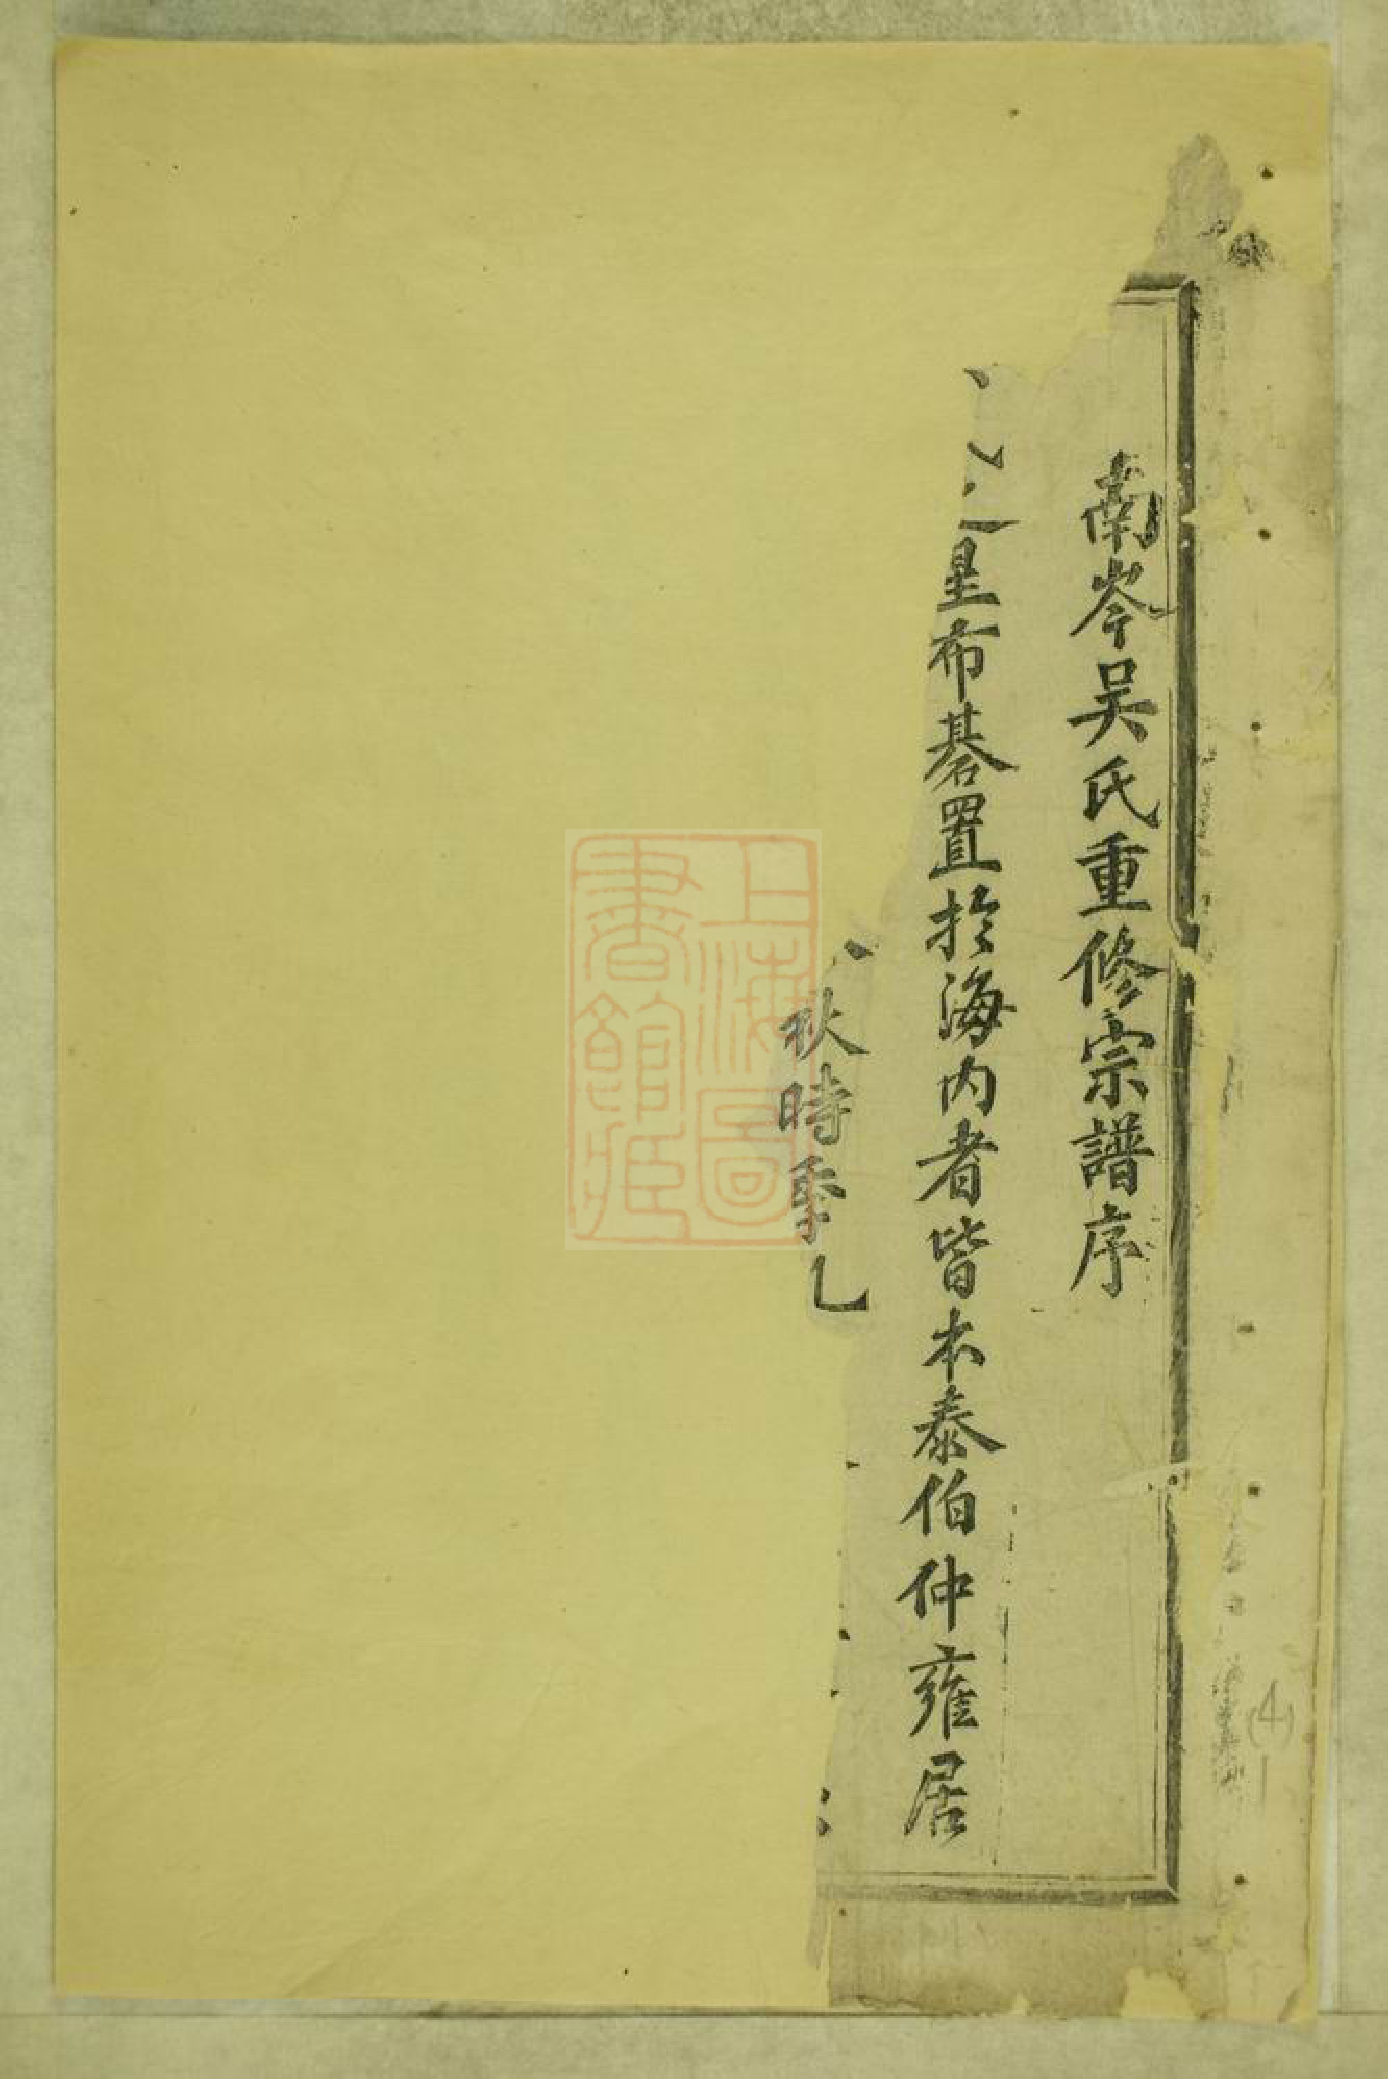 南岑吳氏重修宗譜序
星布碁置於海內者皆本泰伯仲雍居
秋時季
上海圖書館藏
(4)
1